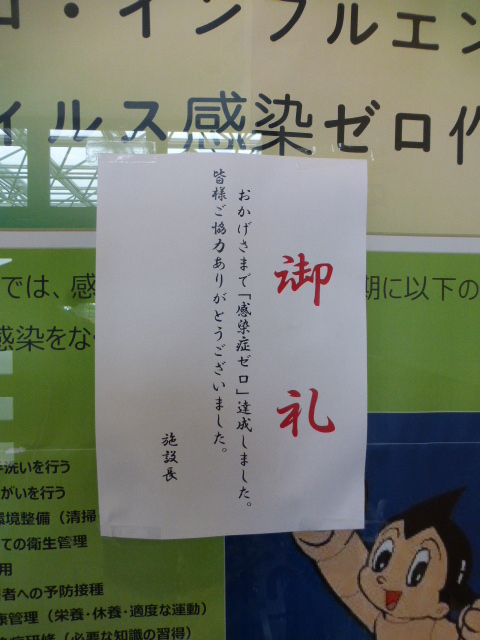 ロ・インフルエン
イルス感染ゼロ作
御礼
おかげさまで「感染症ゼロ」達成しました。
皆様ご協力ありがとうございました。
施設長
では、感
期に以下の
感染をな
手洗いを行う
がいを行う
環境整備（清掃
ての衛生管理
用
者への予防接種
康管理（栄養・休養・適度な運動）
研修（必要な知識の習得）